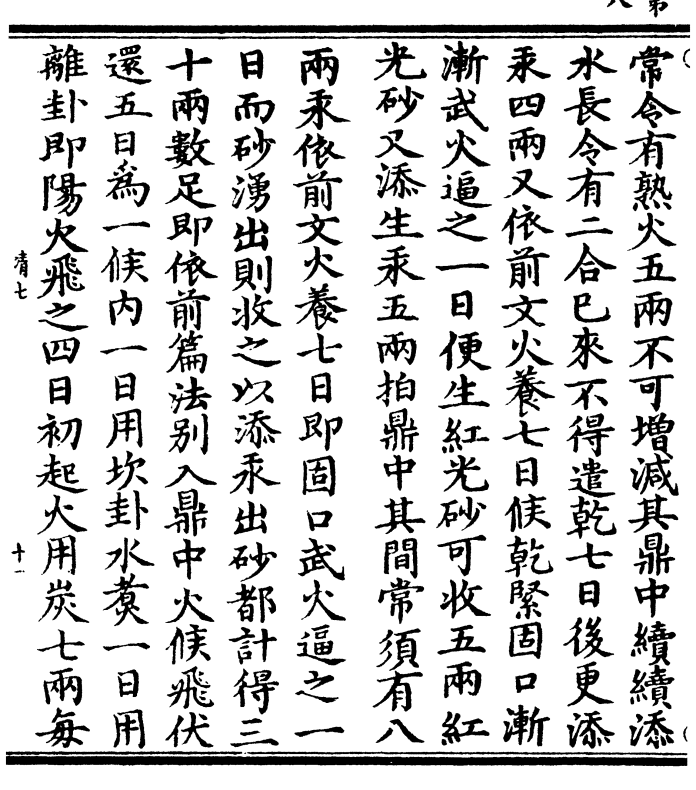 常令有熟火五兩不可增減其鼎中續續添
水長令有二合巳來不得遣乾七日後更添
汞四兩又依前文火養七日候乾緊固口漸
漸武火逼之一日便生紅光砂可收五兩紅
光砂又添生汞五兩拍鼎中其間常須有八
兩汞依前文火養七日即固口武火逼之一
日而砂湧出則收之以添汞出砂都計得三
十兩數足即依前篇法别入鼎中火候飛伏
還五日爲一候内一日用坎卦水煑一日用
離卦即陽火飛之四日初起火用炭七兩每
清七
十一